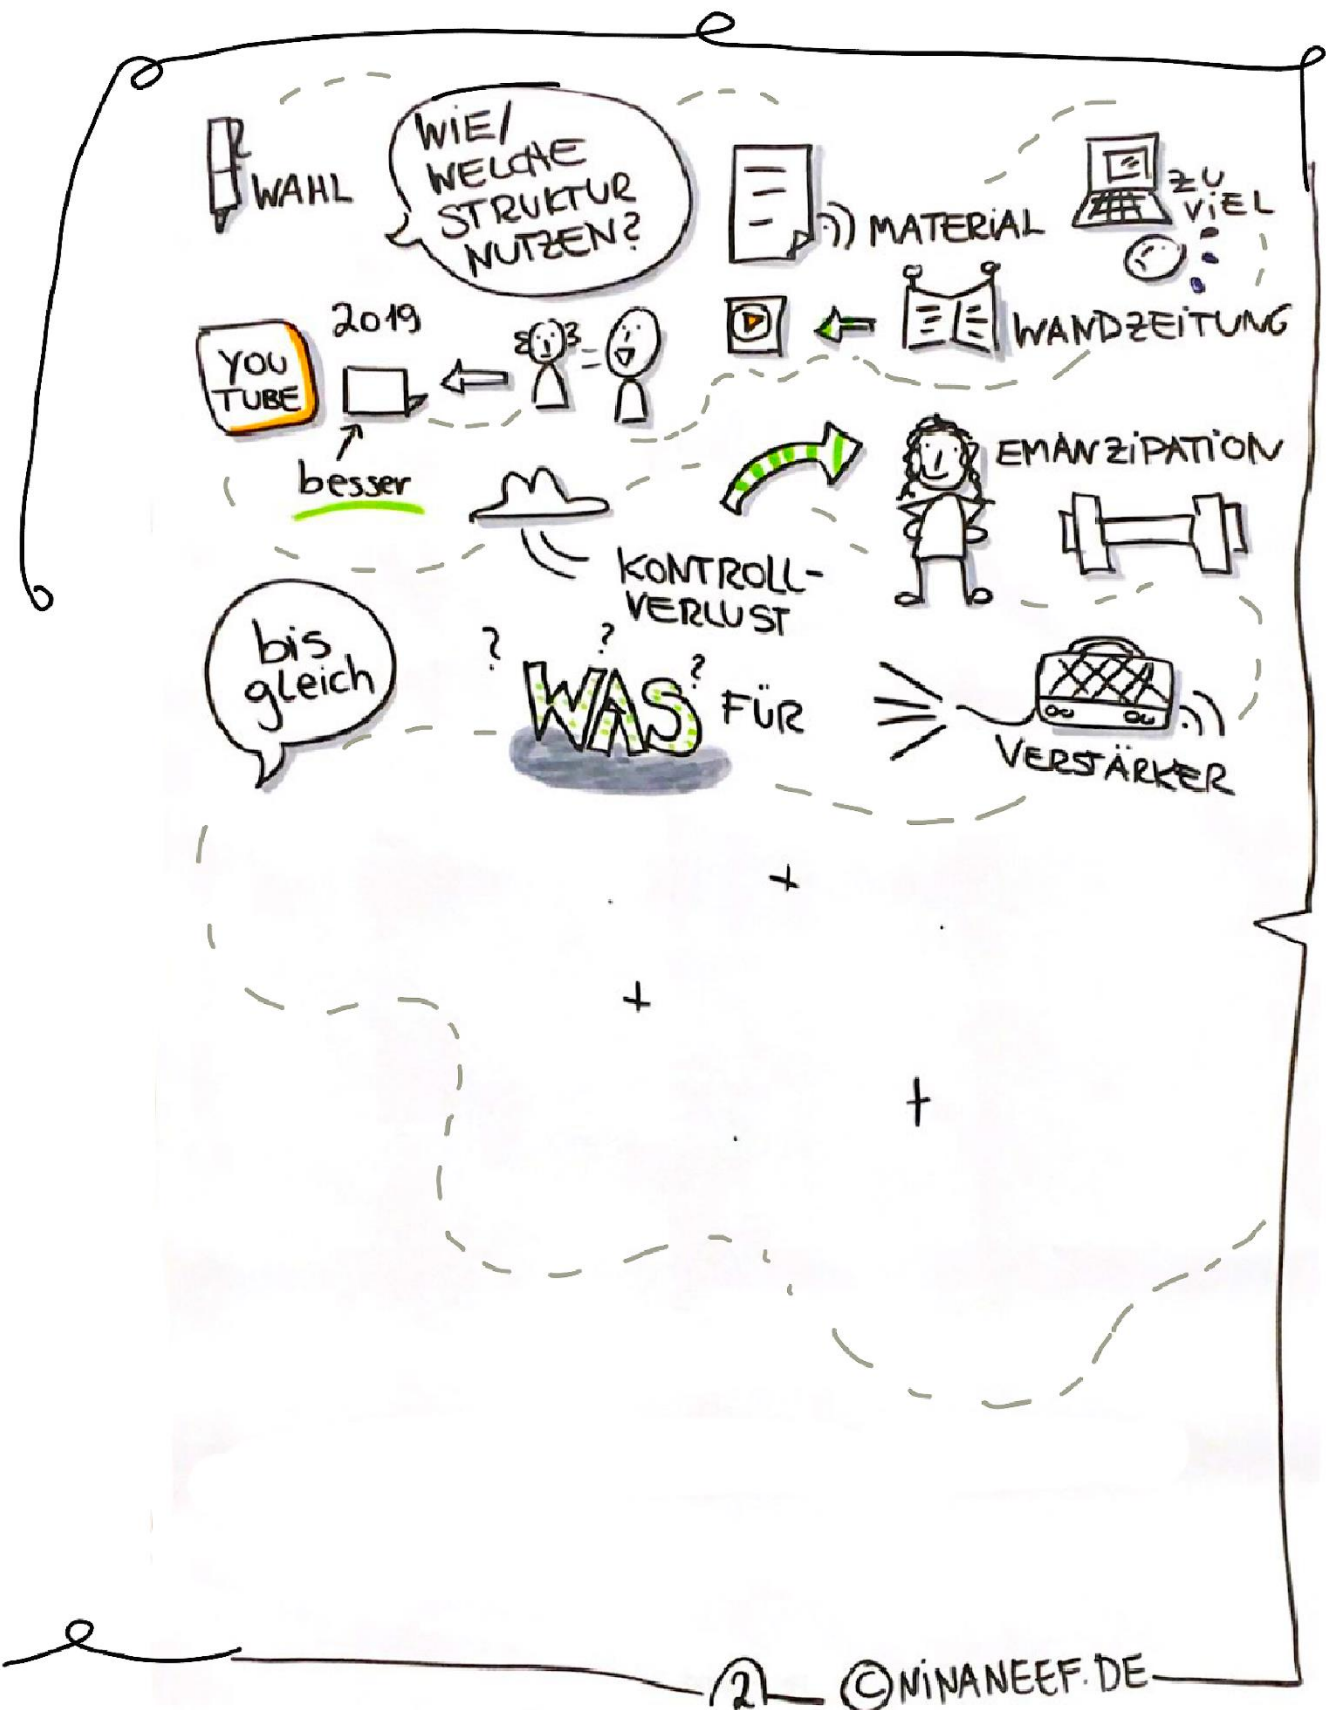 WAHL
WIE/
WELCHE
STRUKTUR
NUTZEN?
MATERIAL
ZU
VIEL
2019
YOU
TUBE
WANDZEITUNG
besser
EMANZIPATION
KONTROLL-
VERLUST
bis
gleich
? ? ?
WAS FÜR
VERSTÄRKER
2 ©NINANEEF.DE